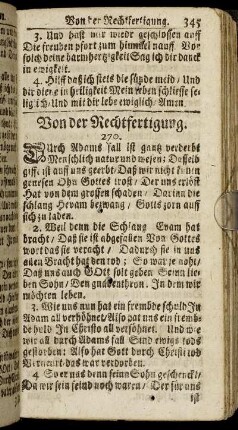 Von der Rechtfertigung. 345
3. Und hast mir wieder geschlossen auff
Die freuden pfort zum himmel nauff Vor
solch deine barmhertzigkeit Sag ich dir danck
in ewigkeit.
4. Hilff daß ich stets die sünde meid, Und
dir diene in heiligkeit Mein leben schliesse se-
lig ich Und mit dir lebe ewiglich Amen
Von der Rechtfertigung.
270.
Durch Adams fall ist gantz verderbt
Menschlich natur und wesen; Dasselb
gifft ist auff uns geerbt, Daß wir nicht
genesen Ohn Gottes trost, Der uns erlöst
Hat von dem grossen schaden, Darinn die
schlang Hevam bezwang, Gotts zorn auff
sich zu laden.
2. Weil denn die Schlang Evam hat
bracht, Daß sie ist abgefallen Von Gottes
wort das sie veracht, Dadurch sie in uns
allen Bracht hat den tod; So war je noht,
Daß uns auch GOtt solt geben Seinn lie-
ben Sohn, Den gnadenthron, In dem wir
möchten leben.
3. Wie uns nun hat ein frembde schuld In
Adam all verhöhnet, Also hat uns ein fremb-
de huld In Christo all versöhnet. Und wie
wir all durch Adams fall Sind ewigs tods
gestorben: Also hat Gott durch Christi tod
Verneurt, das war verdorben.
4. So er uns denn seinn Sohn geschenckt,
Da wir sein feind noch waren, Der für uns
ist